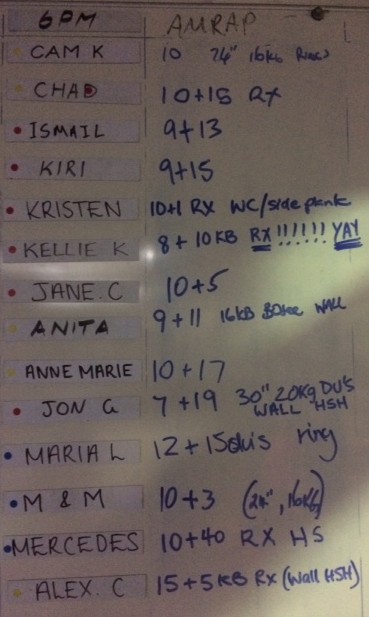 6PM AMRAP
CAM K 10 24" 16KG Rings
CHAD 10+15 RX
ISMAIL 9+13
KIRI 9+15
KRISTEN 10+1 RX WC/side plank
KELLIE K 8+10KB RX!!!!!! YAY
JANE.C 10+5
ANITA 9+11 16KB WALL
ANNE MARIE 10+17
JON G 7+19 30" 20Kg DU'S
WALL HSH
MARIA L 12+15du's ring
M & M 10+3 (24", 16KG)
MERCEDES 10+40 RX HS
ALEX. C 15+5KB RX (Wall HSH)